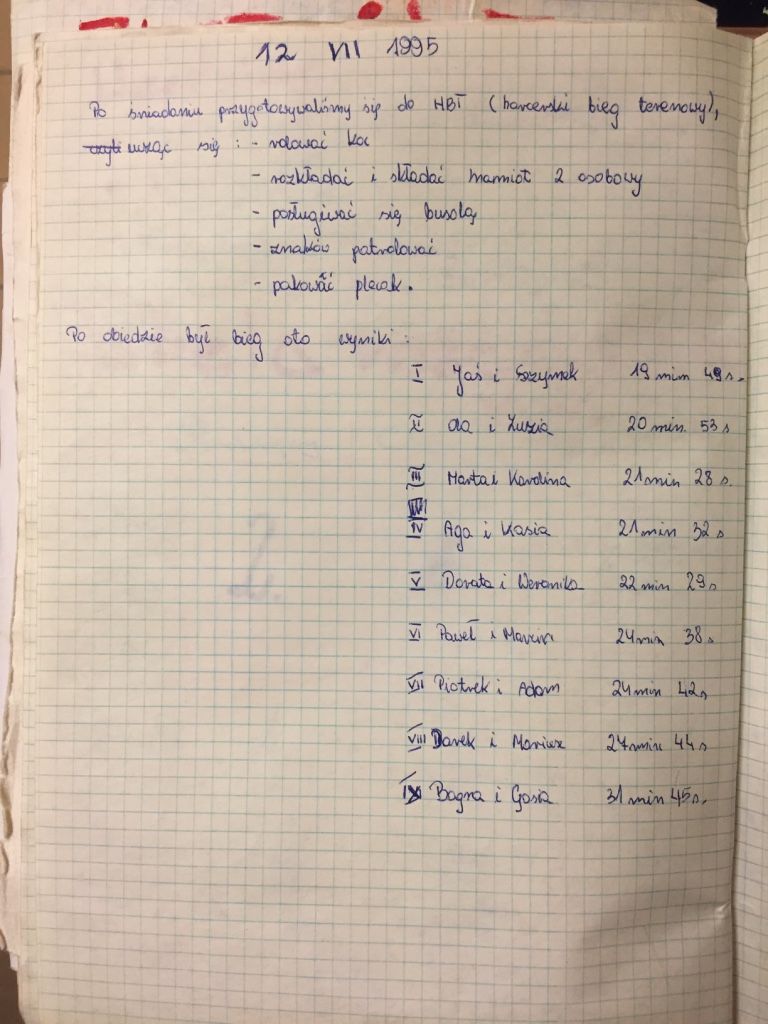 12 VII 1995
Po śniadaniu przygotowywaliśmy się do HBT (harcerski bieg terenowy),
ucząc się : - rolować koc
- rozkładać i składać namiot 2 osobowy
- posługiwać się busolą
- znaków patrolować
- pakować plecak.
Po obiedzie był bieg oto wyniki :
I Jaś i Szymek 19 min 49 s.
II Ola i Zuzia 20 min. 53 s
III Marta i Karolina 21 min 28 s.
IV Aga i Kasia 21 min 32 s
V Dorota i Weronika 22 min 29 s
VI Paweł i Marcin 24 min 38 s
VII Piotrek i Adam 24 min 42 s
VIII Darek i Mariusz 27 min 44 s
IX Bagna i Gosia 31 min 45 s.